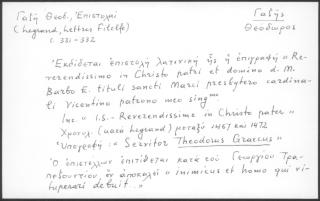 Γαζῆ Θεοδ., Ἐπιστολαὶ
Γαζῆς
(Legrand, Lettres Filelfe)
Θεόδωρος
σ. 331-332
Ἐκδίδεται ἐπιστολὴ λατινικὴ ἧς ἡ ἐπιγραφὴ "Re-
verendissimo in Christo patri et domino d. M.
Barbo E. tituli sancti Marci presbytero cardina-
li Vicentino patrono meo sing
Inc. = "i.S.- Reverendissime in Christo pater"
Χρονολ. (κατὰ Legrand) μεταξὺ 1467 καὶ 1472
Ὑπογραφή: "Servitor Theodorus Graecus"
Ὁ ἐπιστέλλων ἐπιτίθεται κατὰ τοῦ Γεωργίου Τρα-
πεζουντίου, ὃν ἀποκαλεῖ "inimicus et homo qui vi-
tuperari debuit.."